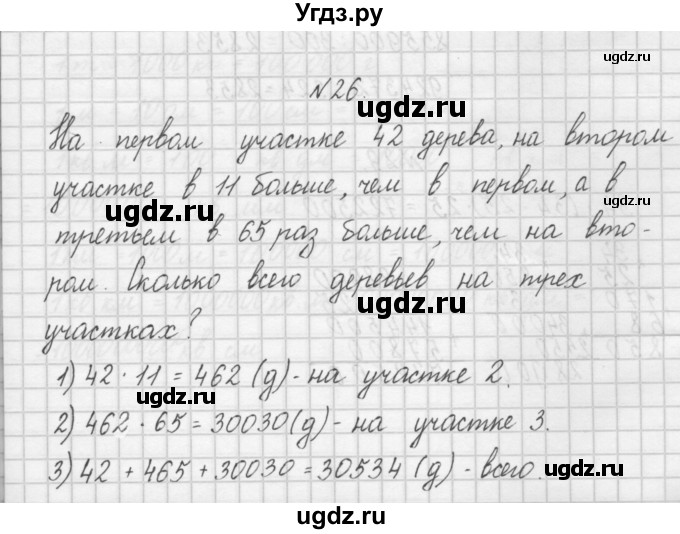 Угдз.ру
ugdz.ru
№26.
ugdz.ru
На первом участке 42 дерева, на втором
участке в 11 больше, чем в первом, а в
ugdz.ru
ugdz.ru
третьем в 65 раз больше, чем на вто-
ром. Сколько всего деревьев на трех
ugdz.ru
участках?
1) 42 · 11 = 462 (д) - на участке 2.
ugdz.ru
2) 462 · 65 = 30030 (д) - на участке 3.
3) 42 + 465 + 30030 = 30534 (д) - всего.
ugdz.ru
ugdz.ru